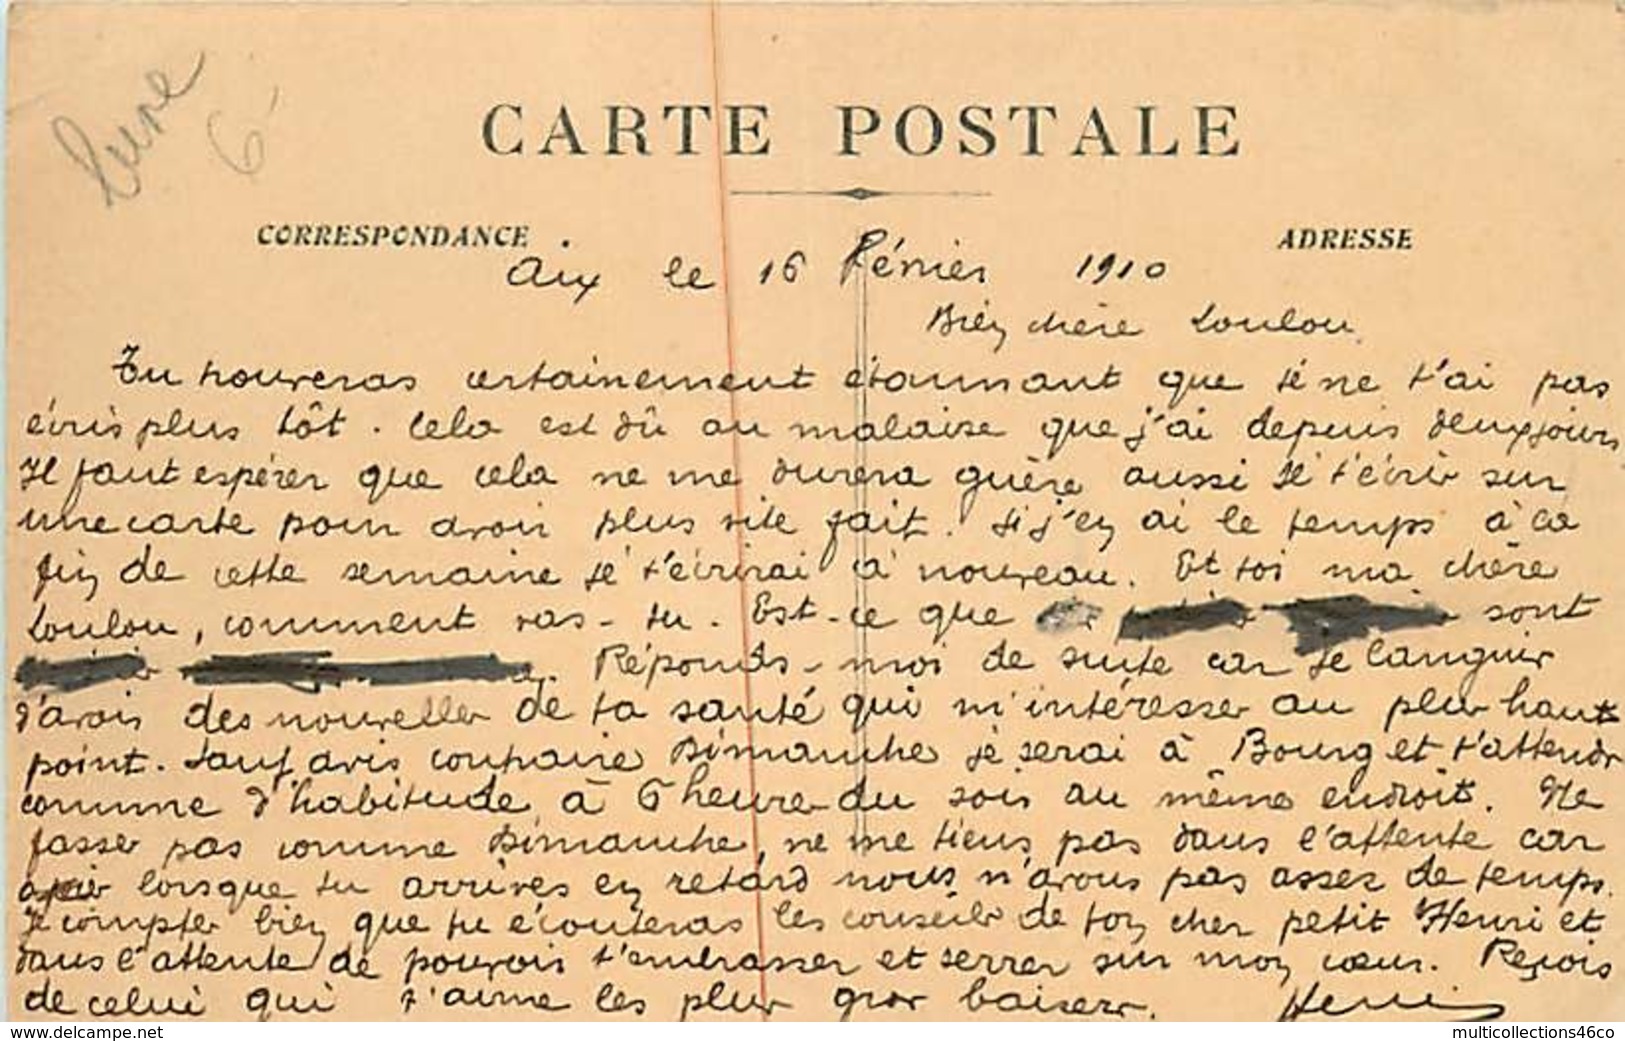 6
CARTE POSTALE
CORRESPONDANCE
ADRESSE
Aix le 16 Février 1910
Bien chère Loulou
Tu trouveras certainement étonnant que je ne t'ai pas
écris plus tôt. Cela est dû au malaise que j'ai depuis deux jours
Il faut espérer que cela ne me durera guère aussi je t'écris sur
une carte pour avoir plus vite fait. Si j'en ai le temps à la
fin de cette semaine je t'écrirai à nouveau. Et toi ma chère
Loulou, comment vas-tu. Est-ce que sont
Réponds-moi de suite car je languis
d'avoir des nouvelles de ta santé qui m'intéresse au plus haut
point. Sauf avis contraire Dimanche je serai à Bourg et t'attendr
comme d'habitude à 6 heures du soir au même endroit. Ne
fasses pas comme Dimanche, ne me tiens pas dans l'attente car
lorsque tu arrives en retard nous n'avons pas assez de temps.
Je compte bien que tu écouteras les conseils de ton cher petit Henri et
dans l'attente de pouvoir t'embrasser et serrer sur mon cœur. Reçois
de celui qui t'aime les plus gros baisers. Henri
multicollections46co
www.delcampe.net